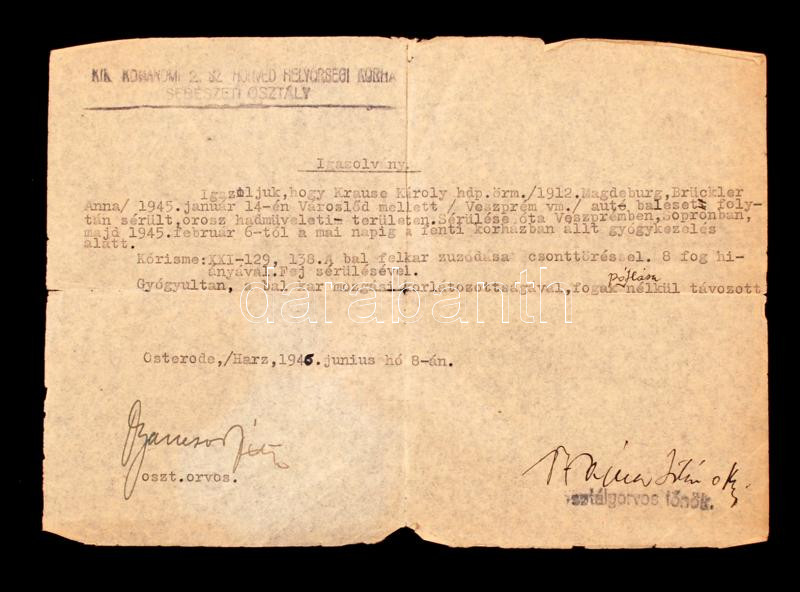 KIR. KOMÁROMI 2. SZ. HONVÉD HELYŐRSÉGI KÓRHÁ
SEBÉSZETI OSZTÁLY
Igazolvány.
Igazoljuk,hogy Krause Károly hdp.örm./1912.Magdeburg,Brückler
Anna/ 1945.január 14-én Városlőd mellett / Veszprém vm./ autó baleset foly-
tán sérült,orosz hadmüveleti- területen.Sérülése óta Veszprémben,Sopronban,
majd 1945.február 6-tól a mai napig a fenti kórházban állt gyógykezelés
alatt.
Kórisme:XXI-129, 138.A bal felkar zuzódása csonttöréssel. 8 fog hi-
ányával.Fej sérülésével.
pótlása
Gyógyultan, a bal kar mozgási korlátozottságával,fogak nélkül távozott
darabanth
Osterode,/Harz,1946.junius hó 8-án.
oszt.orvos.
István
osztályorvos főnök.